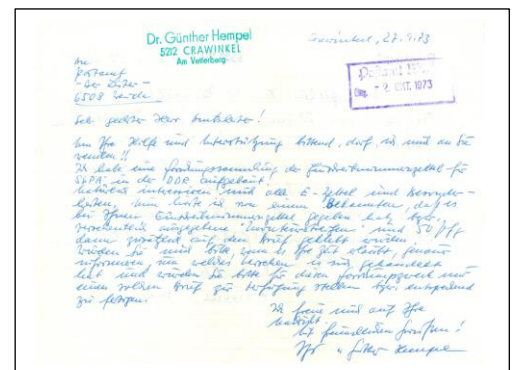 Dr. Günther Hempel
5212 CRAWINKEL
Am Vetterberg
Crawinkel, 27.9.73
An
Postamt
- Der Leiter -
6508 Weida
Postamt
Eing. - 2. OKT. 1973
Sehr geehrter Herr Amtsleiter!
Um Ihre Hilfe und Unterstützung bittend, darf ich mich an Sie
wenden!!
Ich habe eine Forschungssammlung der Einschreibnummernzettel für
SbPÄ in der DDR aufgebaut.
Natürlich interessieren mich alle E-Zettel und Besonder-
heiten. Nun hörte ich von einem Bekannten, daß es
bei Ihnen Einschreibnummernzettel gegeben hat, bzw.
versehentlich ausgegebene und 50 Pfg
dann zusätzlich auf den Brief geklebt wurden.
Würden Sie mich bitte, wenn es Ihre Zeit erlaubt, genau
informieren um welches es sich gehandelt
hat und würden Sie bitte für diesen Forschungszweck mir
einen solchen Brief zur Verfügung stellen bzw. entsprechend
zu fertigen.
Ich freue mich auf Ihre
Antwort
Mit freundlichen Grüßen!
Ihr Günther Hempel